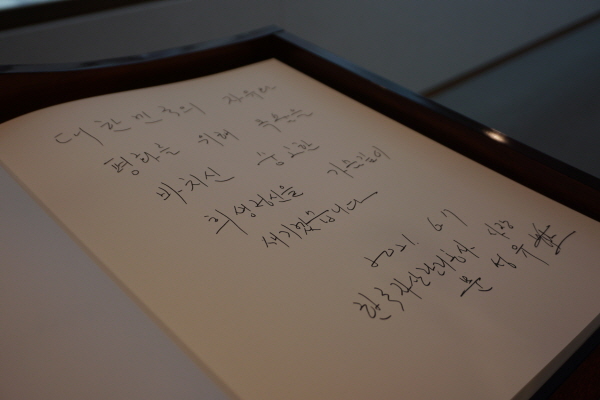 대한민국의 자유와
평화를 위해 목숨을
바치신 숭고한
희생정신을 가슴깊이
새기겠습니다
2021. 6. 7
한국자산관리공사 사장
문성유